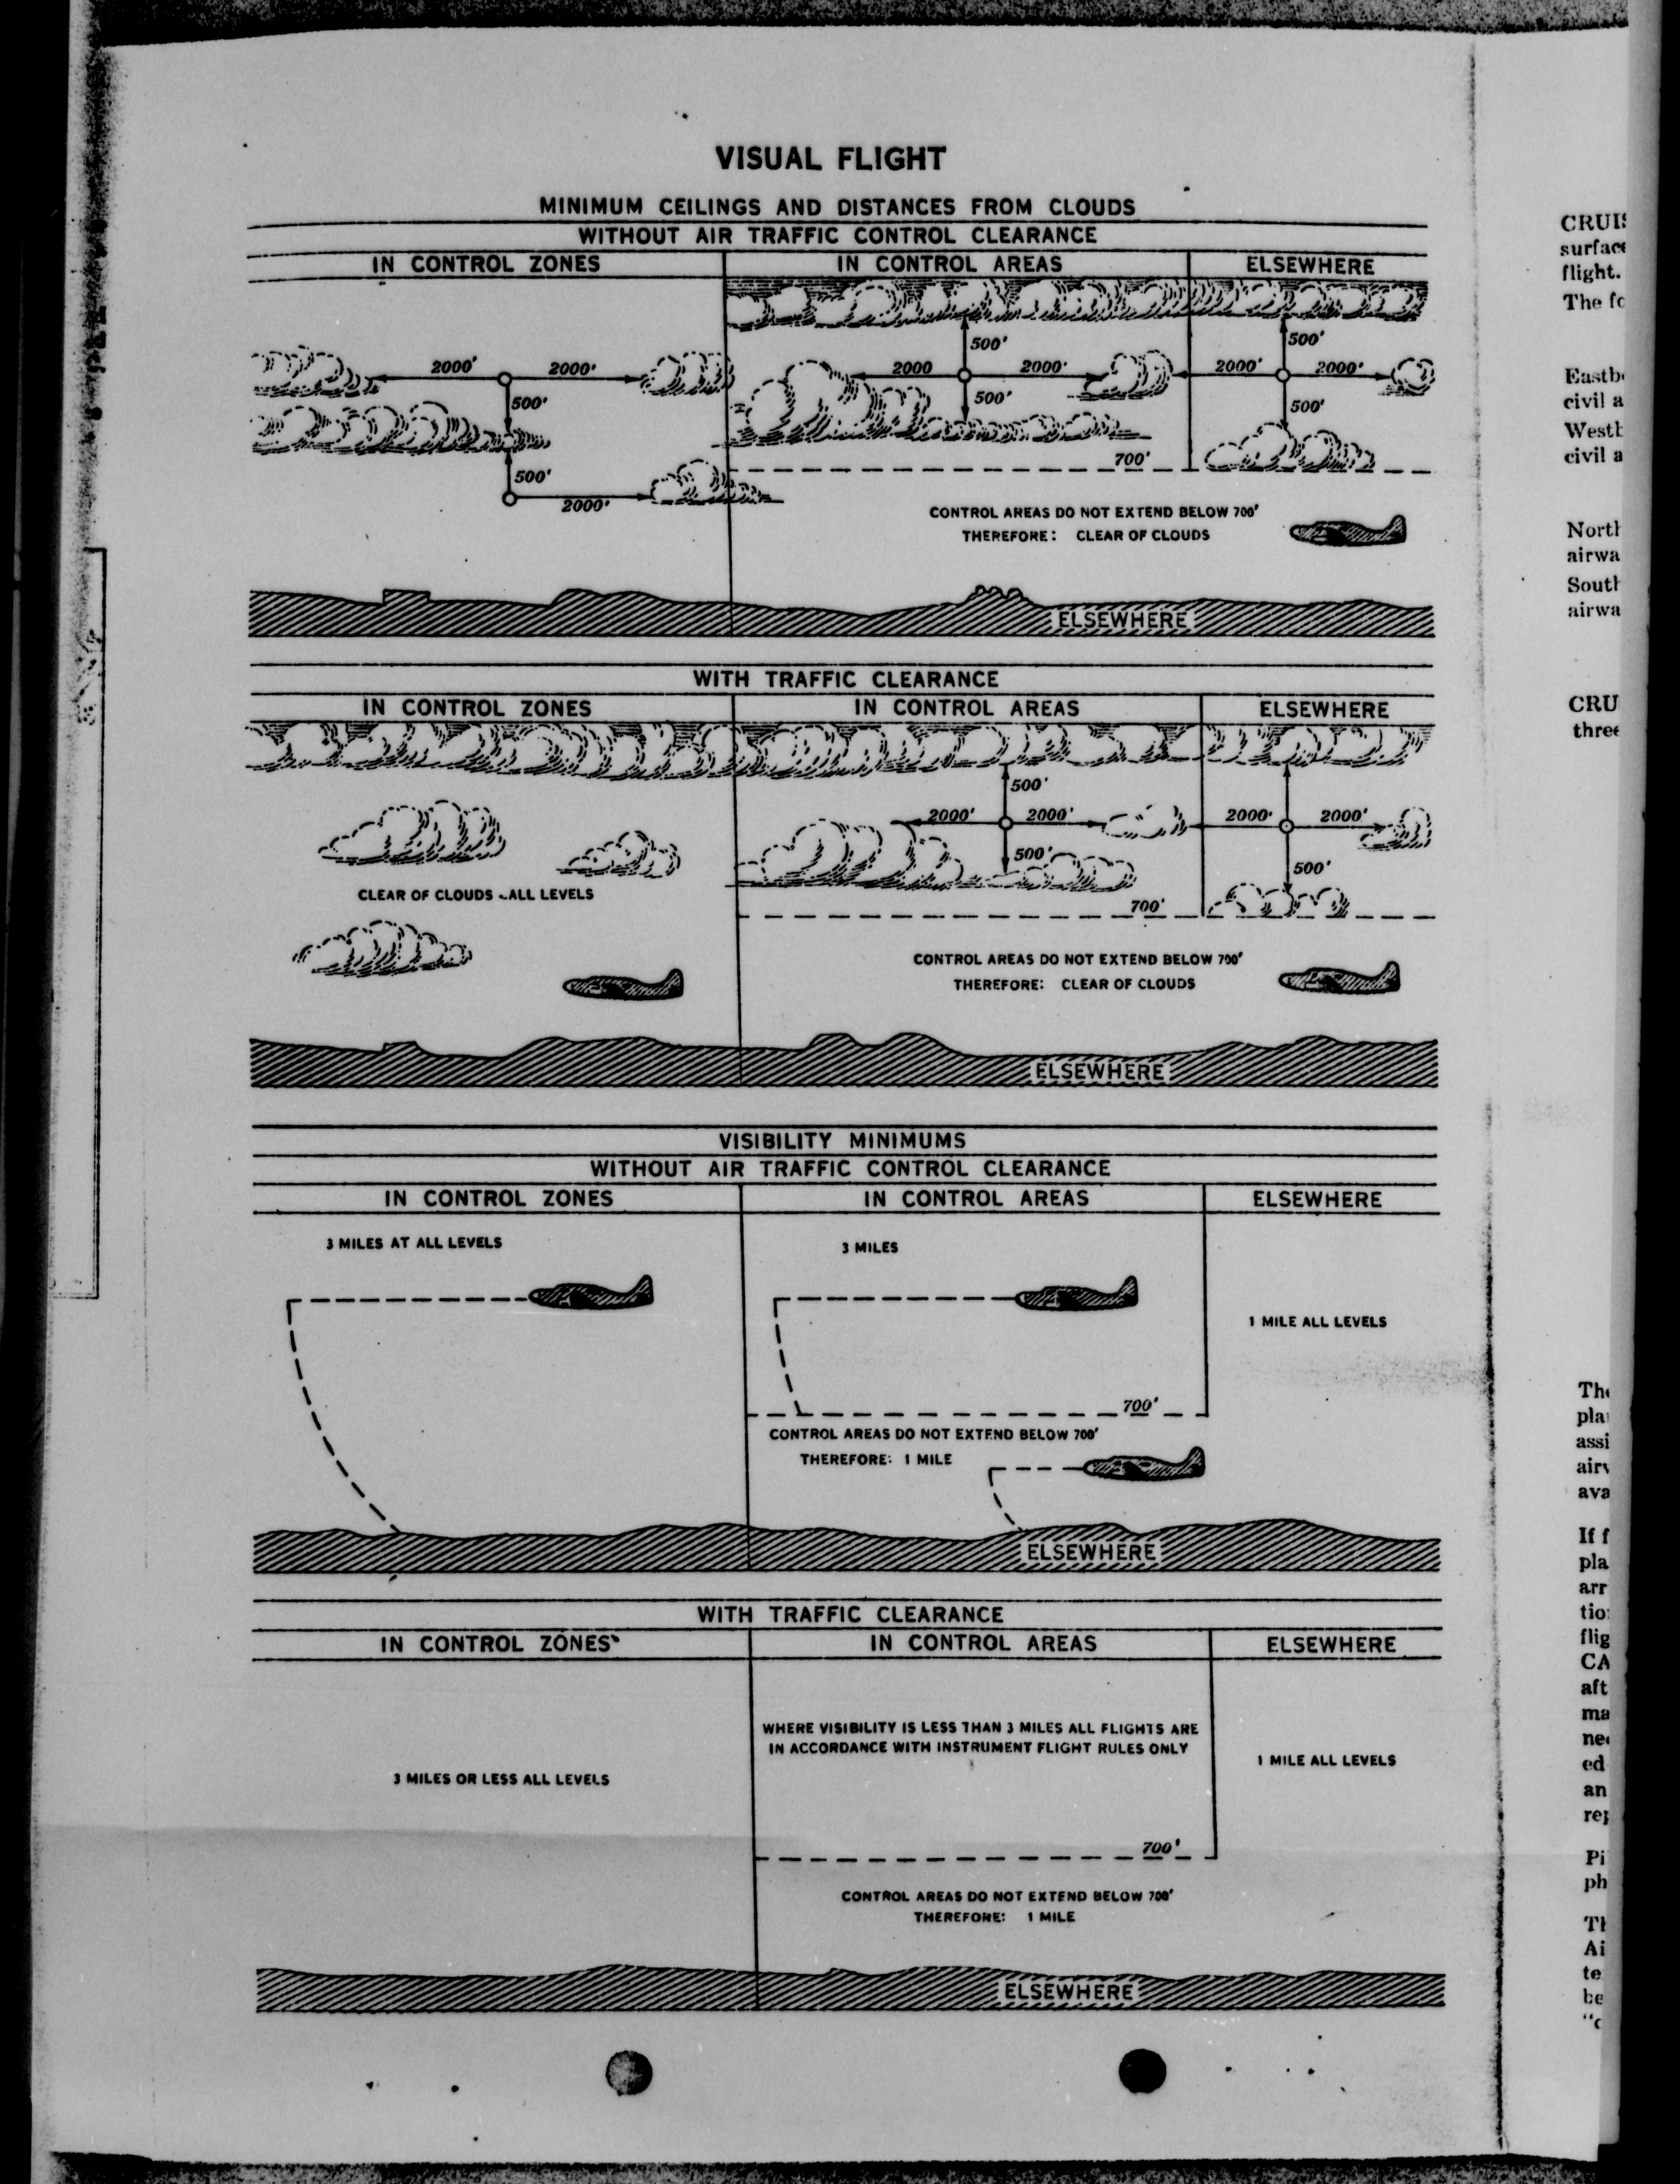 VISUAL FLIGHT
MINIMUM CEILINGS AND DISTANCES FROM CLOUDS
WITHOUT AIR TRAFFIC CONTROL CLEARANCE
IN CONTROL ZONES IN CONTROL AREAS ELSEWHERE
500' 500'
2000' 2000' 2000 2000' 2000' 2000'
500' 500' 500'
700'
500'
2000'
CONTROL AREAS DO NOT EXTEND BELOW 700'
THEREFORE: CLEAR OF CLOUDS
ELSEWHERE
WITH TRAFFIC CLEARANCE
IN CONTROL ZONES IN CONTROL AREAS ELSEWHERE
500'
2000' 2000' 2000' 2000'
500' 500'
CLEAR OF CLOUDS - ALL LEVELS
700'
CONTROL AREAS DO NOT EXTEND BELOW 700'
THEREFORE: CLEAR OF CLOUDS
ELSEWHERE
VISIBILITY MINIMUMS
WITHOUT AIR TRAFFIC CONTROL CLEARANCE
IN CONTROL ZONES IN CONTROL AREAS ELSEWHERE
3 MILES AT ALL LEVELS 3 MILES
1 MILE ALL LEVELS
700'
CONTROL AREAS DO NOT EXTEND BELOW 700'
THEREFORE: 1 MILE
ELSEWHERE
WITH TRAFFIC CLEARANCE
IN CONTROL ZONES IN CONTROL AREAS ELSEWHERE
WHERE VISIBILITY IS LESS THAN 3 MILES ALL FLIGHTS ARE
IN ACCORDANCE WITH INSTRUMENT FLIGHT RULES ONLY
1 MILE ALL LEVELS
3 MILES OR LESS ALL LEVELS
700'
CONTROL AREAS DO NOT EXTEND BELOW 700'
THEREFORE: 1 MILE
ELSEWHERE
flight.
The
civil a
civil a